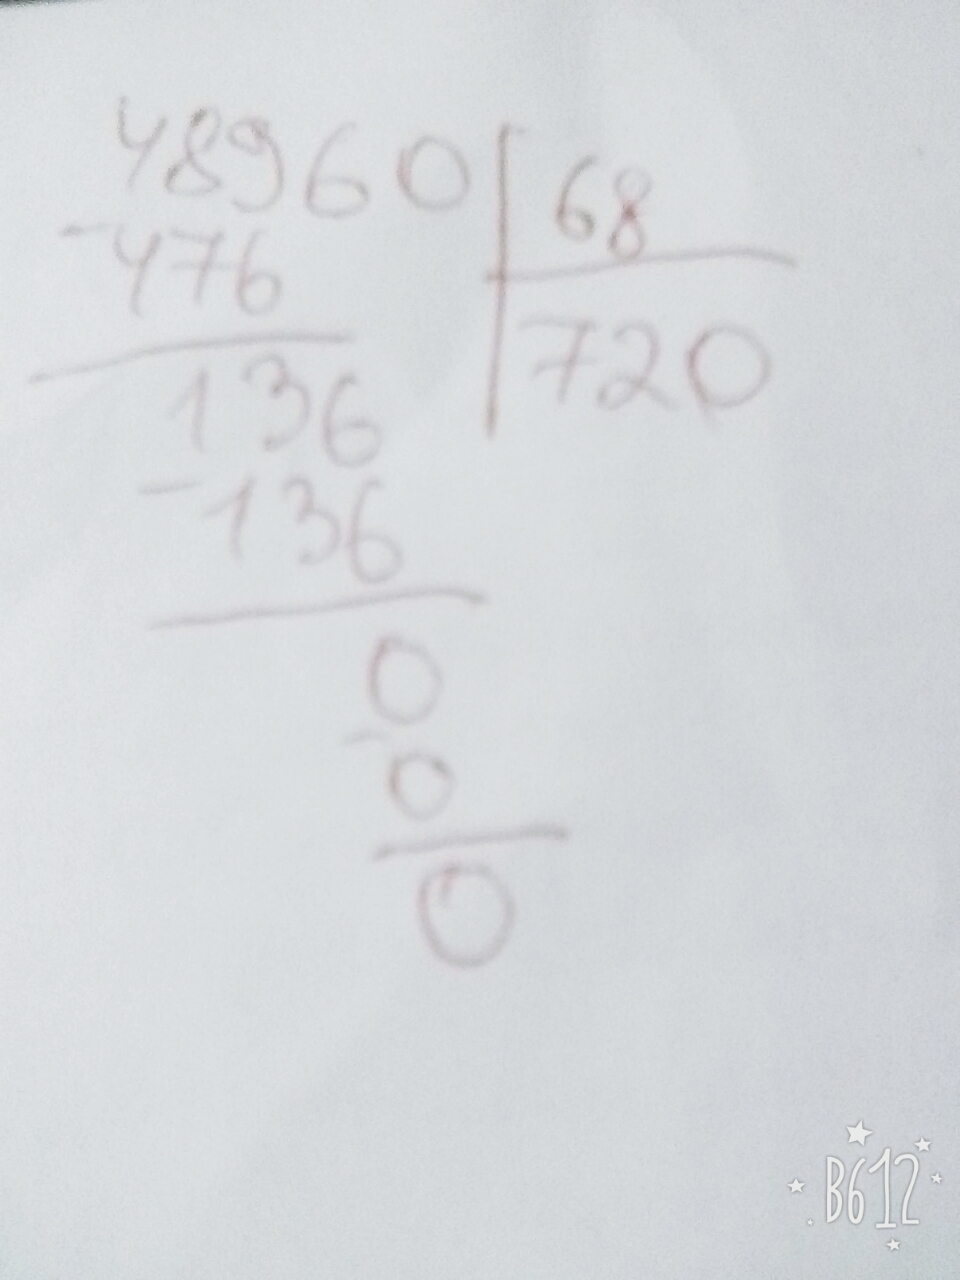 48960 68
-476 720
136
-136
0
-0
0
B612